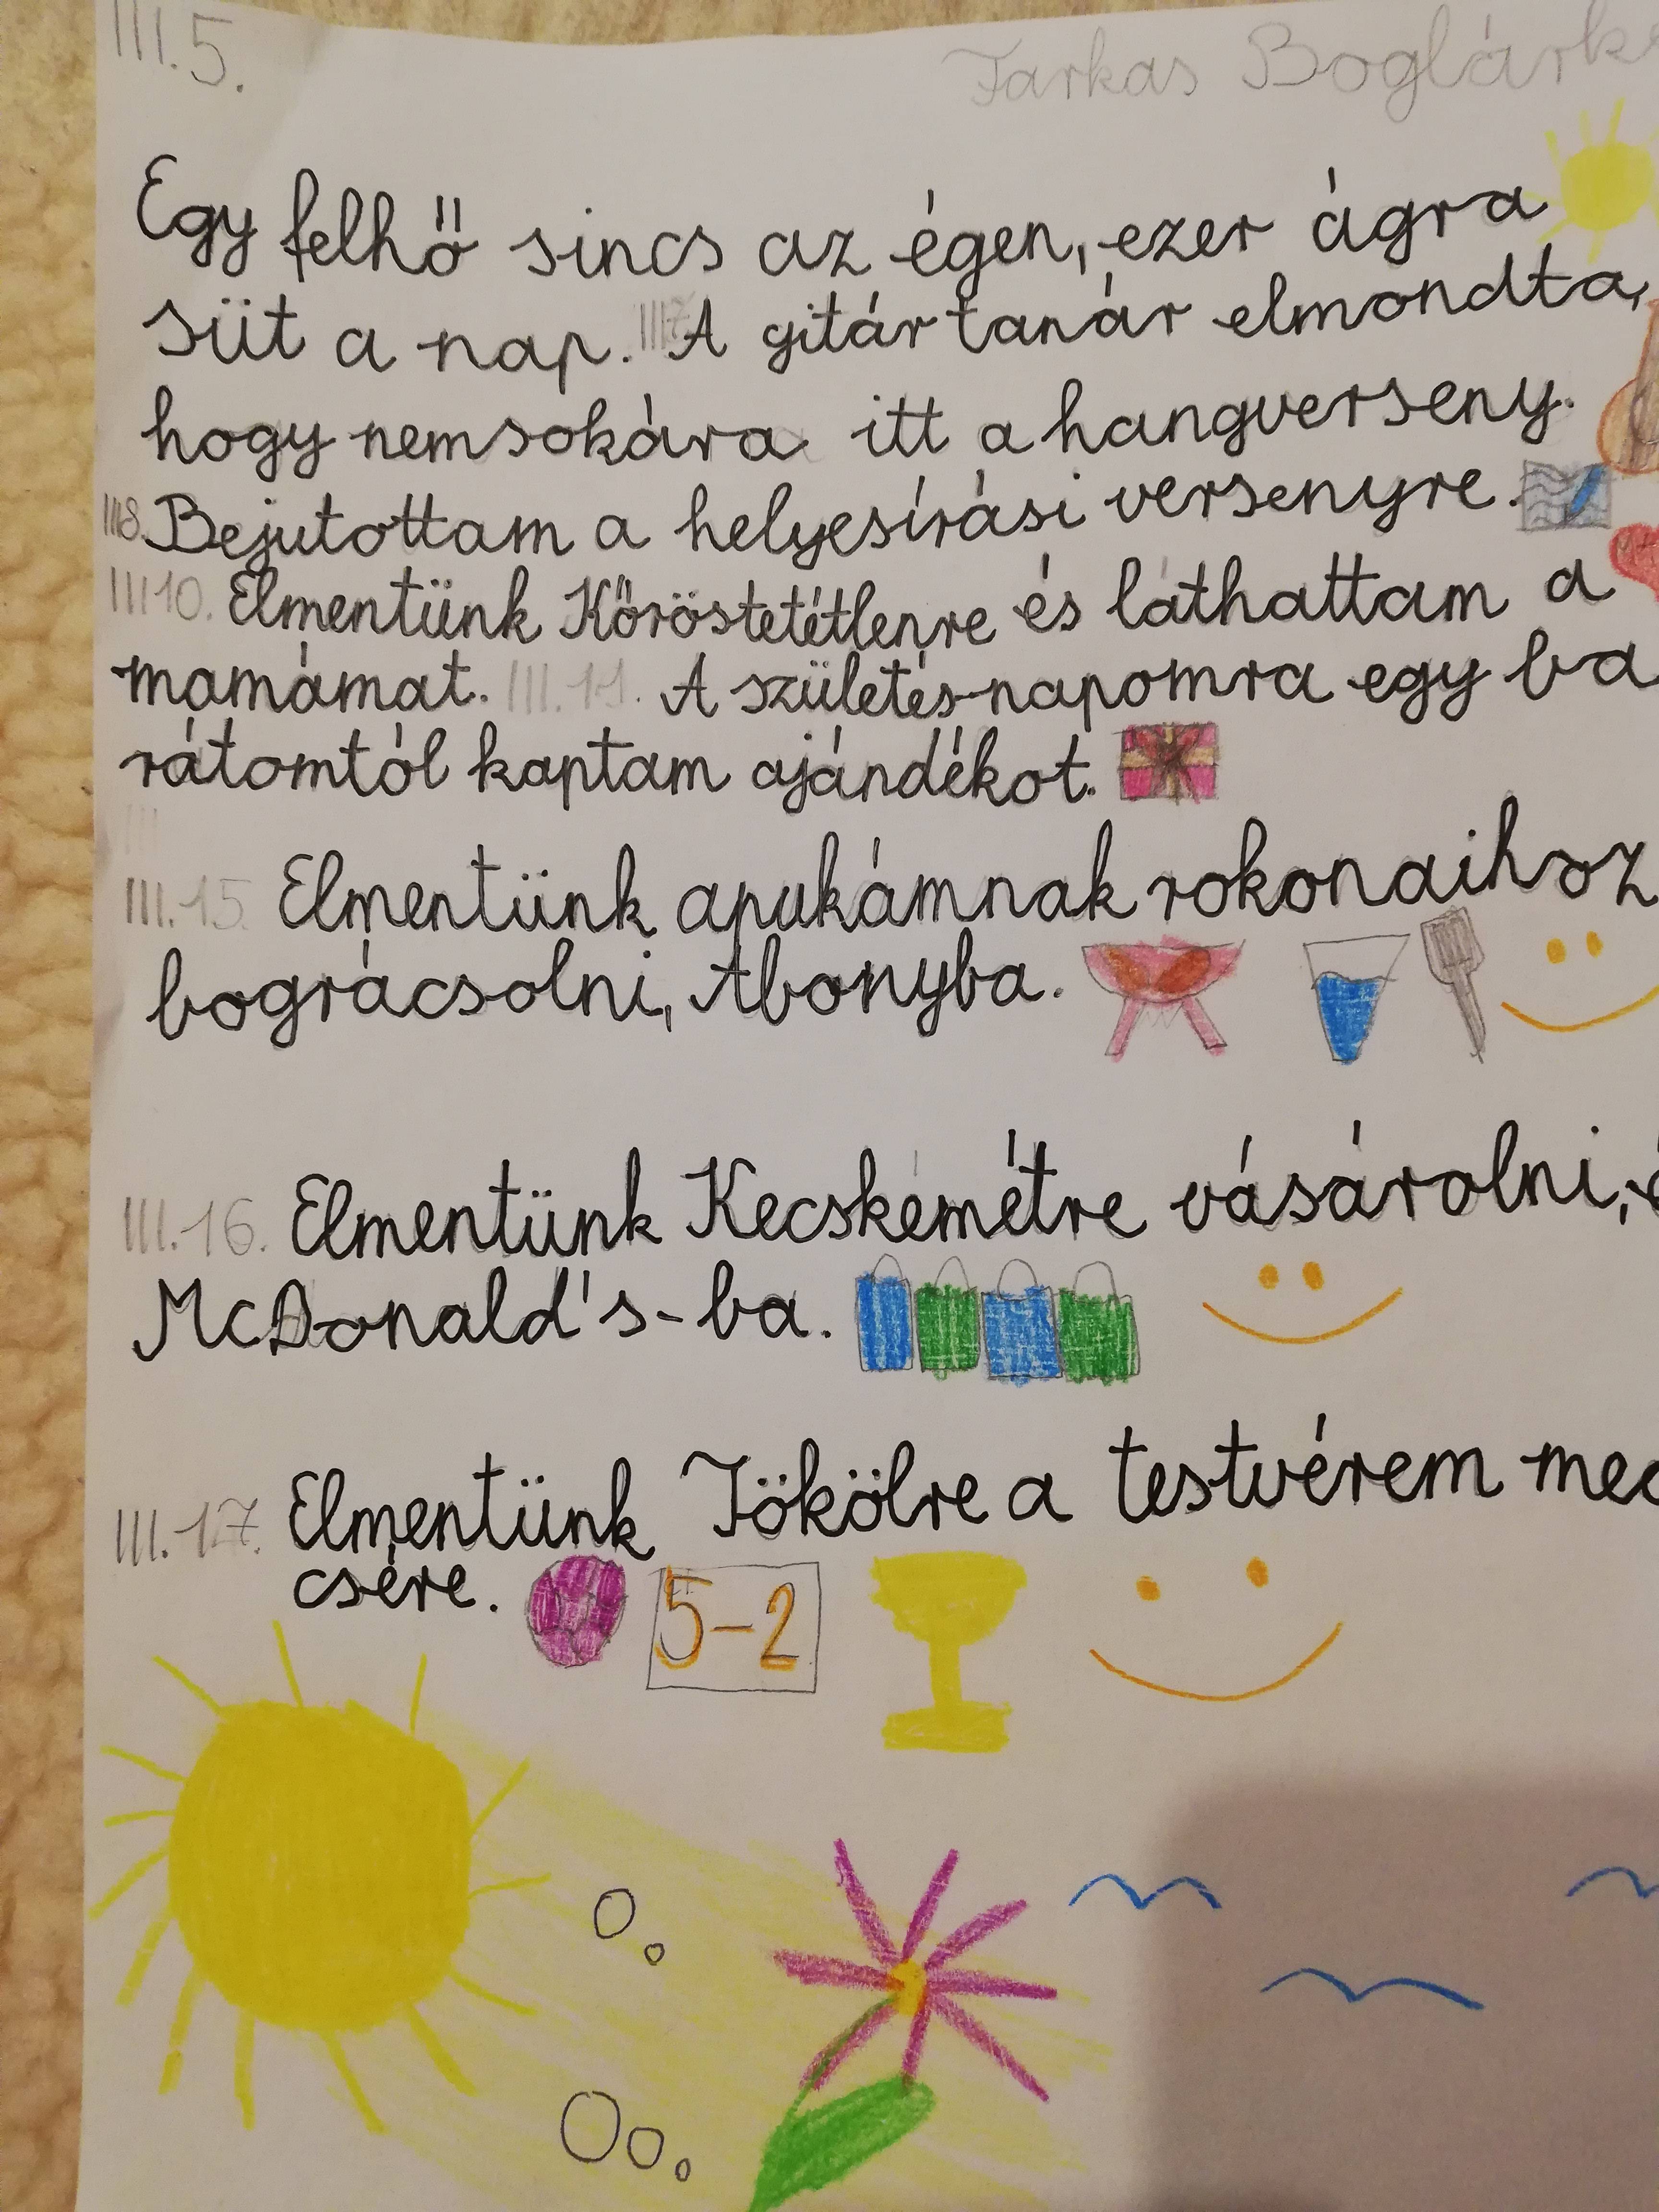 III.5.
Farkas Boglárka
Egy felhő sincs az égen, ezer ágra
süt a nap. III.7. A gitár tanár elmondta,
hogy nemsokára itt a hangverseny.
III.8. Bejutottam a helyesírási versenyre.
III.10. Elmentünk Kőröstetétlenre és láthattam a
mamámat. III.11. A születésnapomra egy ba
rátomtól kaptam ajándékot.
III.15. Elmentünk apukámnak rokonaihoz
bográcsolni, Abonyba.
III.16. Elmentünk Kecskemétre vásárolni,
McDonald's-ba.
III.17. Elmentünk Tökölre a testvérem mec
csére.
5-2